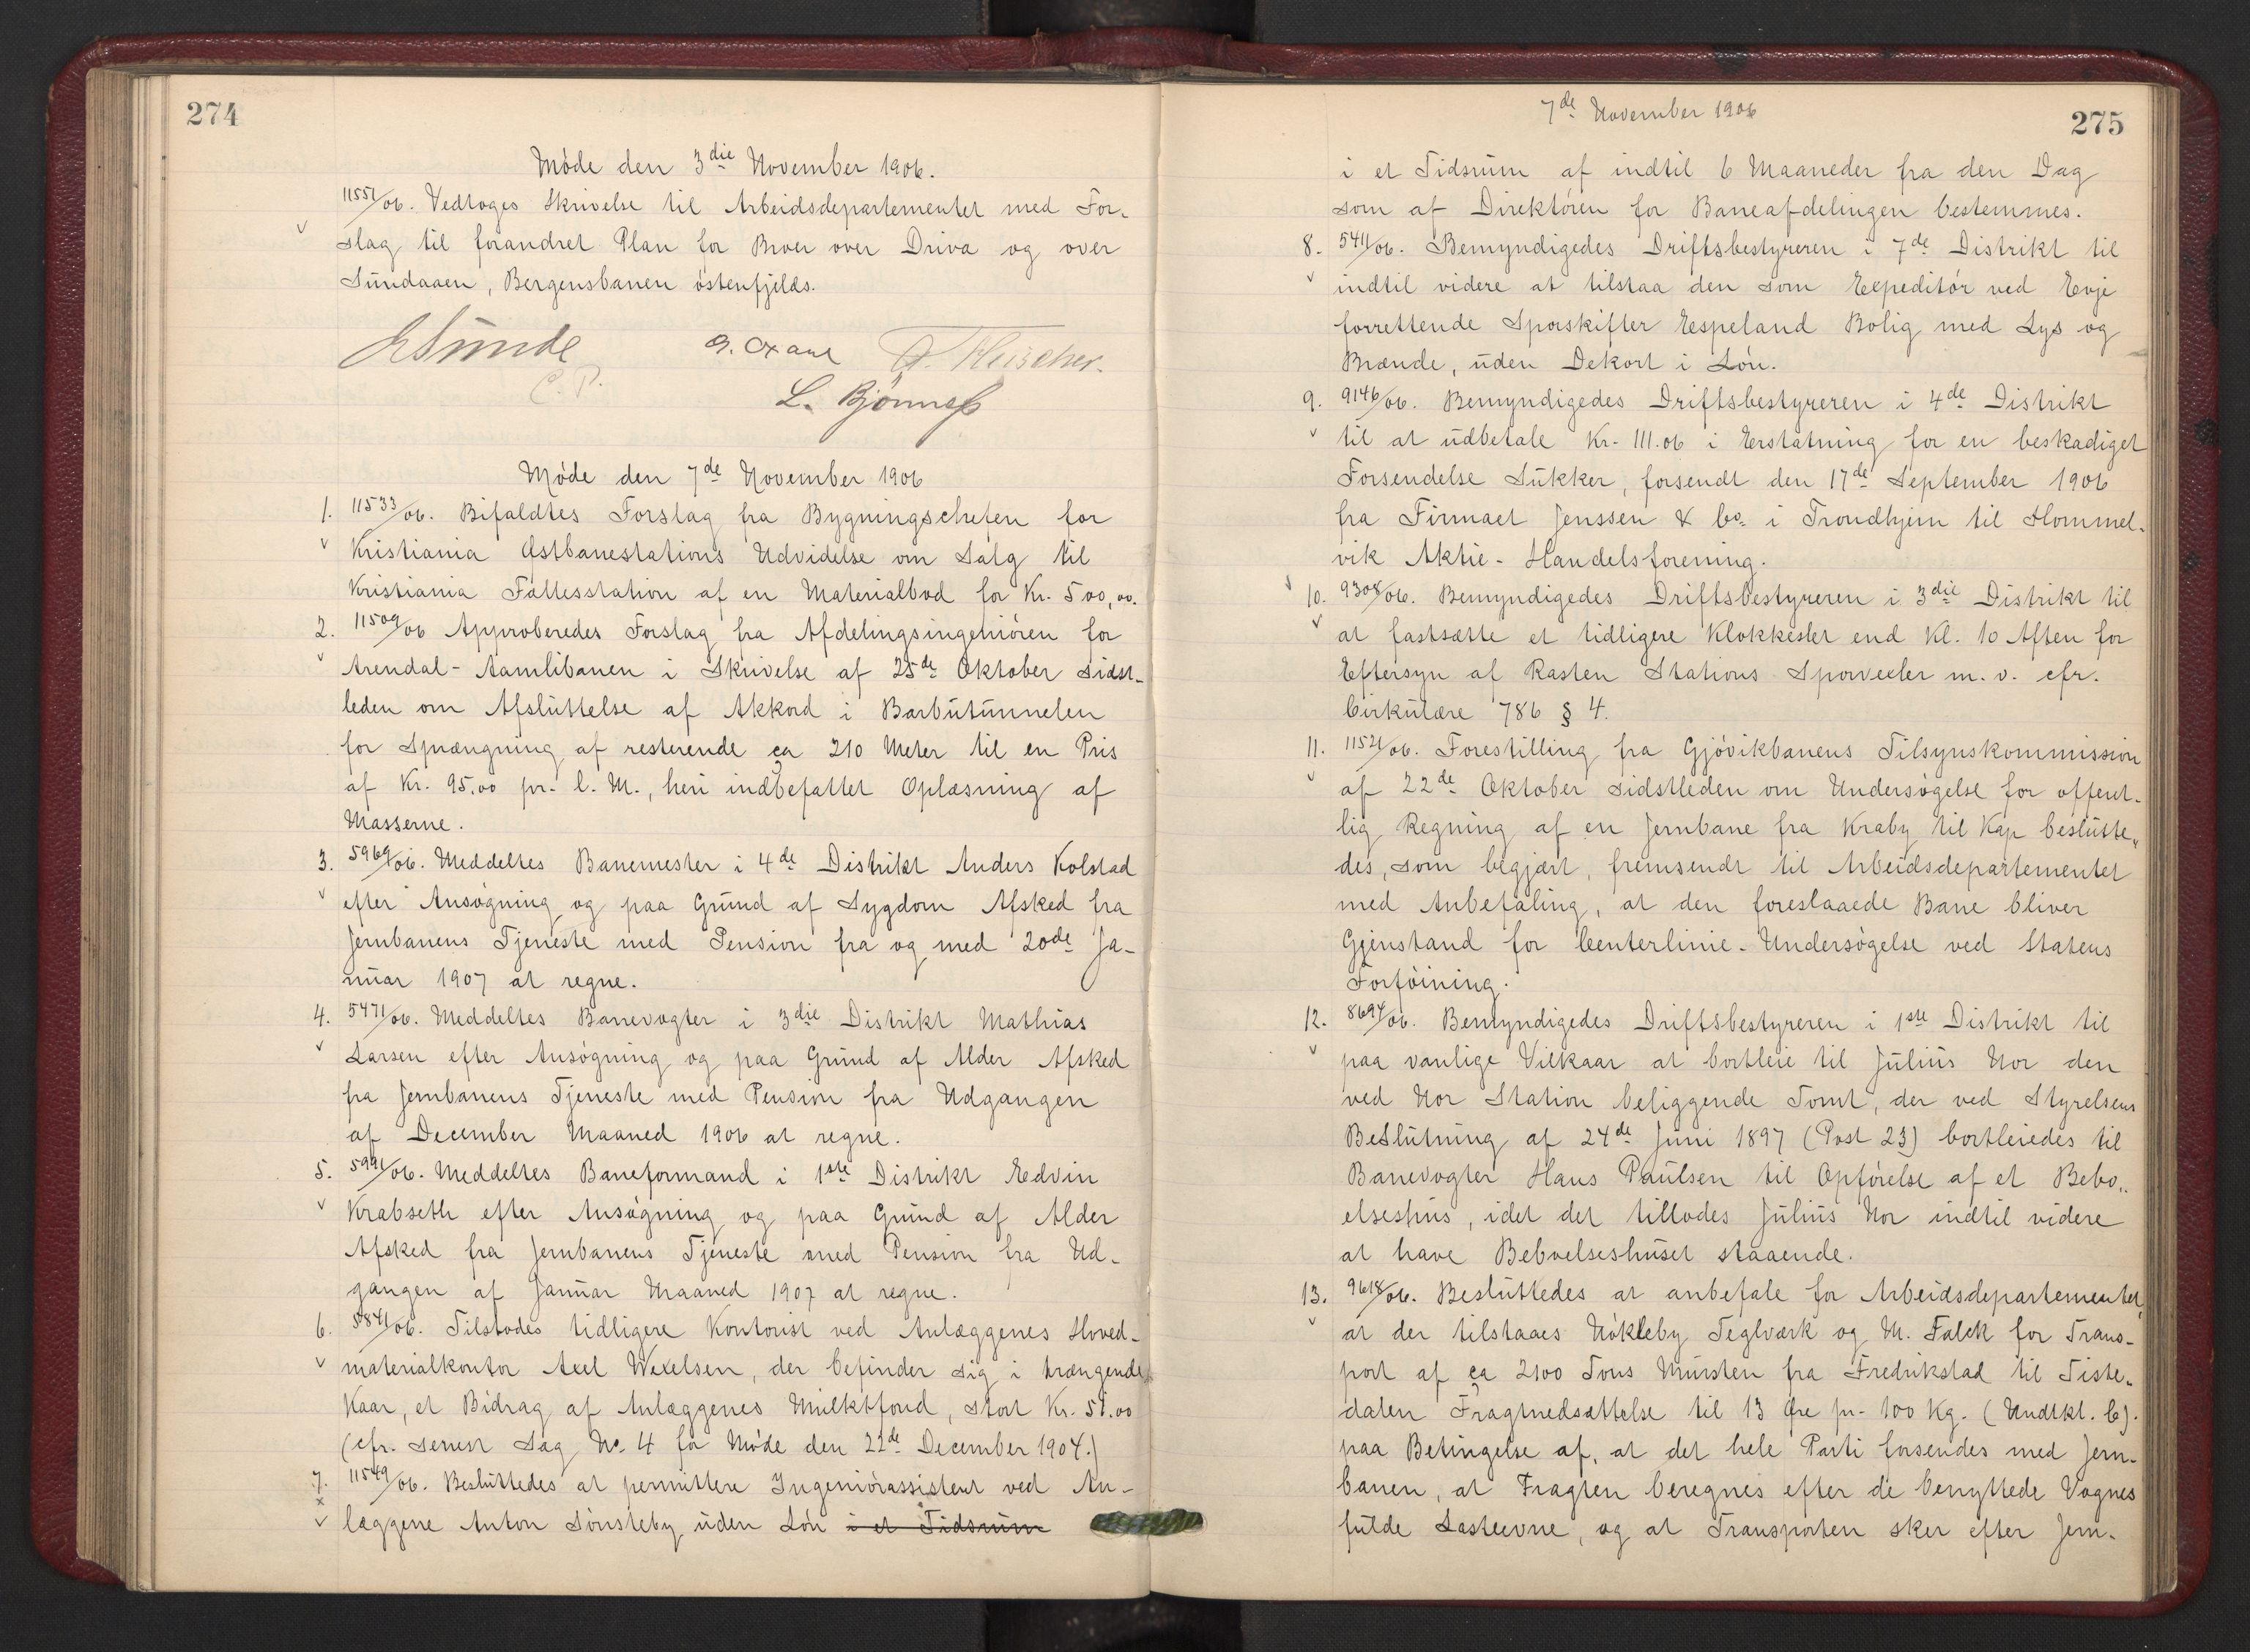 274
Møde den 3die November 1906.
11551/06. Vedtoges Skrivelse til Arbeidsdepartementet med For-
slag til forandret Plan for Broer over Driva og over
Sundaaen, Bergensbanen østenfjelds.
E Sunde
C. P.
L. Bjønness
Møde den 7de November 1906
1. 11533/06. Bifaldtes Forslag fra Bygningschefen for
Kristiania Østbanestations Udvidelse om Salg til
Kristiania Fællesstation af en Materialbod for Kr. 500,00.
2. 11509/06 Approberedes Forslag fra Afdelingsingeniøren for
Arendal-Aamlibanen i Skrivelse af 25de Oktober sidst-
leden om Afsluttelse af Akkord i Barbutunnelen
for Sprængning af resterende ca 210 Meter til en Pris
af Kr. 95.00 pr. l. M., heri indbefattet Oplæsning af
Masserne.
3. 5969/06. Meddeltes Banemester i 4de Distrikt Anders Kolstad
efter Ansøgning og paa Grund af Sygdom Afsked fra
Jernbanens Tjeneste med Pension fra og med 20de Ja-
nuar 1907 at regne.
4. 5471/06. Meddeltes Banevogter i 3die Distrikt Mathias
Larsen efter Ansøgning og paa Grund af Alder Afsked
fra Jernbanens Tjeneste med Pension fra Udgangen
af December Maaned 1906 at regne.
5. 5991/06. Meddeltes Baneformand i 1ste Distrikt Edvin
Krabseth efter Ansøgning og paa Grund af Alder
Afsked fra Jernbanens Tjeneste med Pension fra Ud-
gangen af Januar Maaned 1907 at regne.
6. 5841/06. Tilstodes tidligere Kontorist ved Anlæggenes Hoved-
materialkontor Axel Wexelsen, der befinder sig i trængende
Kaar, et Bidrag af Anlæggenes Mulktfond, stort Kr. 50.00
(cfr. senest Sag No. 4 for Møde den 22de December 1904.)
7. 11549/06. Besluttedes at permittere Ingeniørassistent ved An-
x læggene Anton Sønsteby uden Løn i et Tidsrum
7de November 1906
275
i et Tidsrum af indtil 6 Maaneder fra den Dag
som af Direktøren for Baneafdelingen bestemmes.
8. 5411/06. Bemyndigedes Driftsbestyreren i 7de Distrikt til
indtil videre at tilstaa den som Expeditør ved Evje
forrettende Sporskifter Espeland Bolig med Lys og
Brænde, uden Dekort i Løn.
9. 9146/06. Bemyndigedes Driftsbestyreren i 4de Distrikt
til at udbetale Kr. 111.06 i Erstatning for en beskadiget
Forsendelse Sukker, forsendt den 17de September 1906
fra Firmaet Jenssen & Co. i Trondhjem til Hommel-
vik Aktie-Handelsforening.
10. 9308/06. Bemyndigedes Driftsbestyreren i 3die Distrikt til
at fastsætte et tidligere Klokkeslet end Kl. 10 Aften for
Eftersyn af Rasten Stations Sporvexler m. v. cfr.
Cirkulære 786 § 4.
11. 11521/06. Forestilling fra Gjøvikbanens Tilsynskommission
af 22de Oktober sidstleden om Undersøgelse for offent-
lig Regning af en Jernbane fra Kraby til Kap beslutte-
des, som begjært, fremsendt til Arbeidsdepartementet
med Anbefaling, at den foreslaaede Bane bliver
Gjenstand for Centerlinie-Undersøgelse ved Statens
Forføining.
12. 8694/06. Bemyndigedes Driftsbestyreren i 1ste Distrikt til
paa vanlige Vilkaar at bortleie til Julius Nor den
ved Nor Station beliggende Tomt, der ved Styrelsens
Beslutning af 24de Juni 1897 (Post 23) bortleiedes til
Banevogter Hans Paulsen til Opførelse af et Bebo-
elseshus, idet det tillodes Julius Nor indtil videre
at have Beboelseshuset staaende.
13. 9618/06. Besluttedes at anbefale for Arbeidsdepartementet,
at der tilstaaes Nøkleby Teglværk og M. Falck for Trans-
port af ca 2100 Tons Mursten fra Fredrikstad til Tiste-
dalen Fragtnedsættelse til 13 Øre pr. 100 Kg. (Undtkl. C).
paa Betingelse af, at det hele Parti forsendes med Jern-
banen, at Fragten beregnes efter de benyttede Vognes
fulde Lasteevne, og at Transporten sker efter Jern-